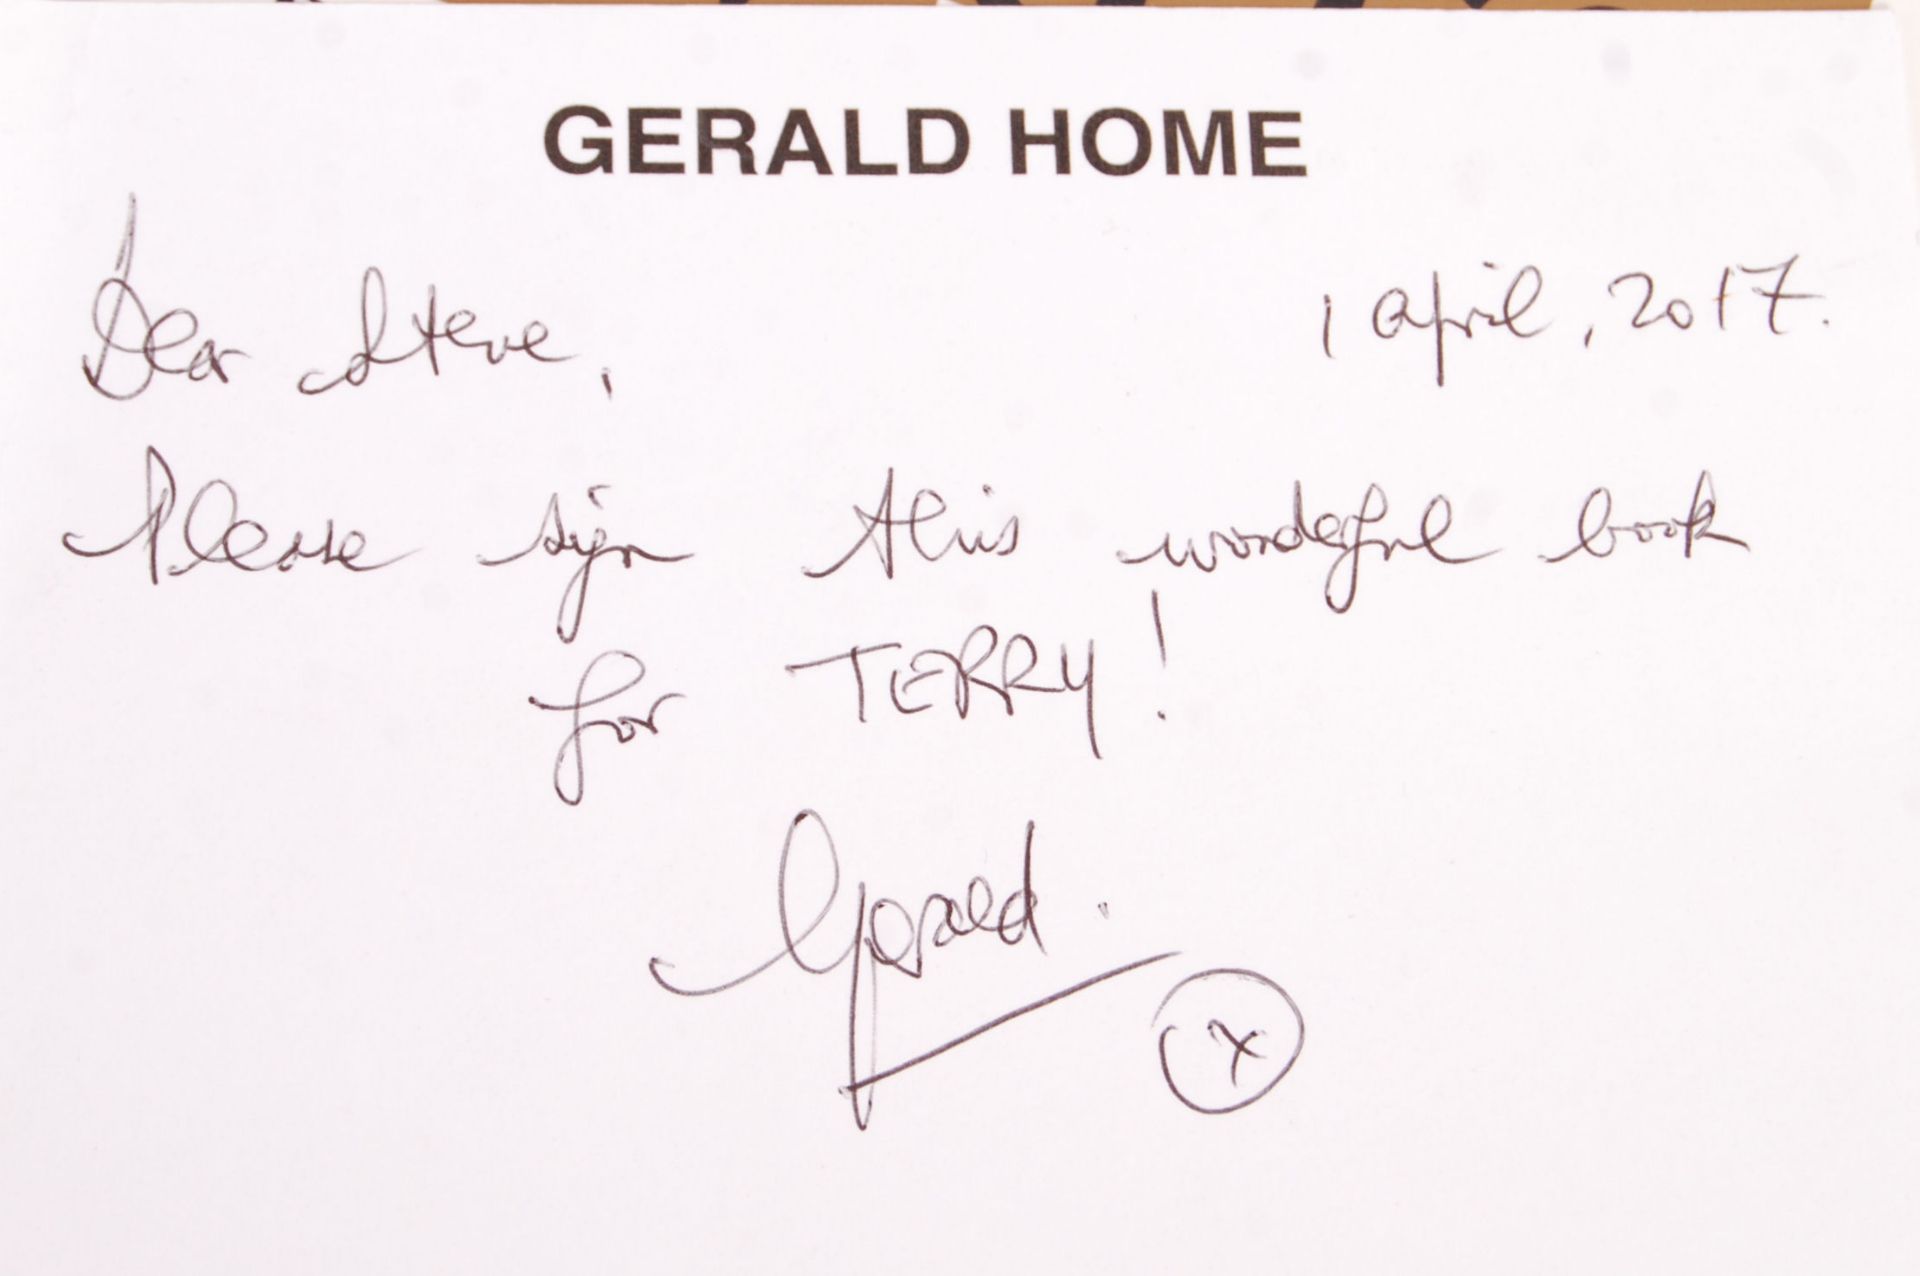 GERALD HOME
Dear Steve,
1 April, 2017.
Please sign this wonderful book
for TERRY!
Gerald.
x